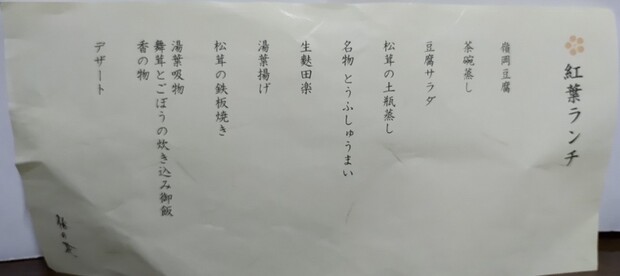 紅葉ランチ
嶺岡豆腐
茶碗蒸し
豆腐サラダ
松茸の土瓶蒸し
名物 とうふしゅうまい
生麩田楽
湯葉揚げ
松茸の鉄板焼き
湯葉吸物
舞茸とごぼうの炊き込み御飯
香の物
デザート